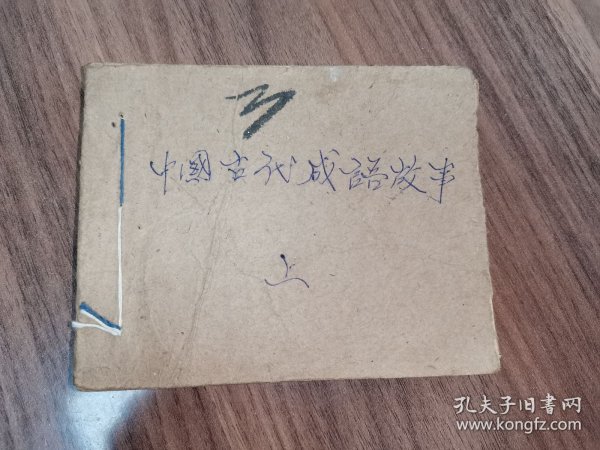 中國古代成語故事
上
孔夫子旧書网
www.kongfz.com